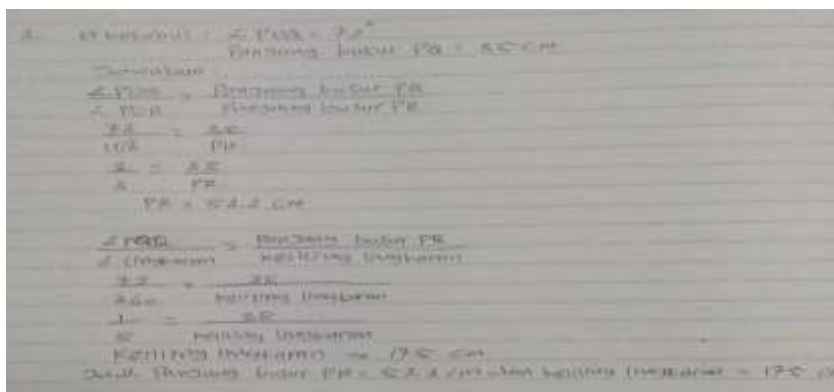 Diketahui : ∠ POQ = 72°
Panjang busur PQ = 35 cm
Jawaban :
∠ POQ = Panjang busur PQ
∠ POR Panjang busur PR
72 = 35
PR
= 35
PR
PR = 52.2 cm
= Panjang busur
∠ lingkaran Keliling lingkaran
72 = 35
360 Keliling lingkaran
1 = 35
5 Keliling lingkaran
Keliling lingkaran = 175 cm
Jadi Panjang busur PR = 52.2 cm dan keliling lingkaran = 175